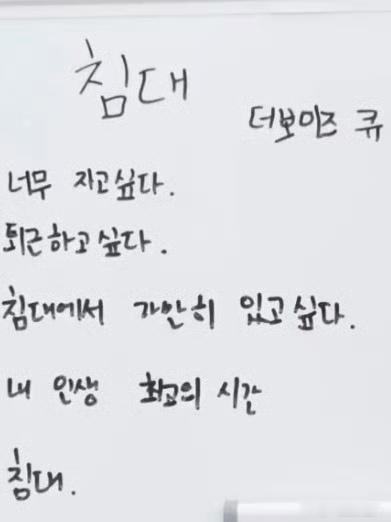 침대
더보이즈 큐
너무 자고싶다.
퇴근하고싶다.
침대에서 가만히 있고싶다.
내 인생 최고의 시간
침대.